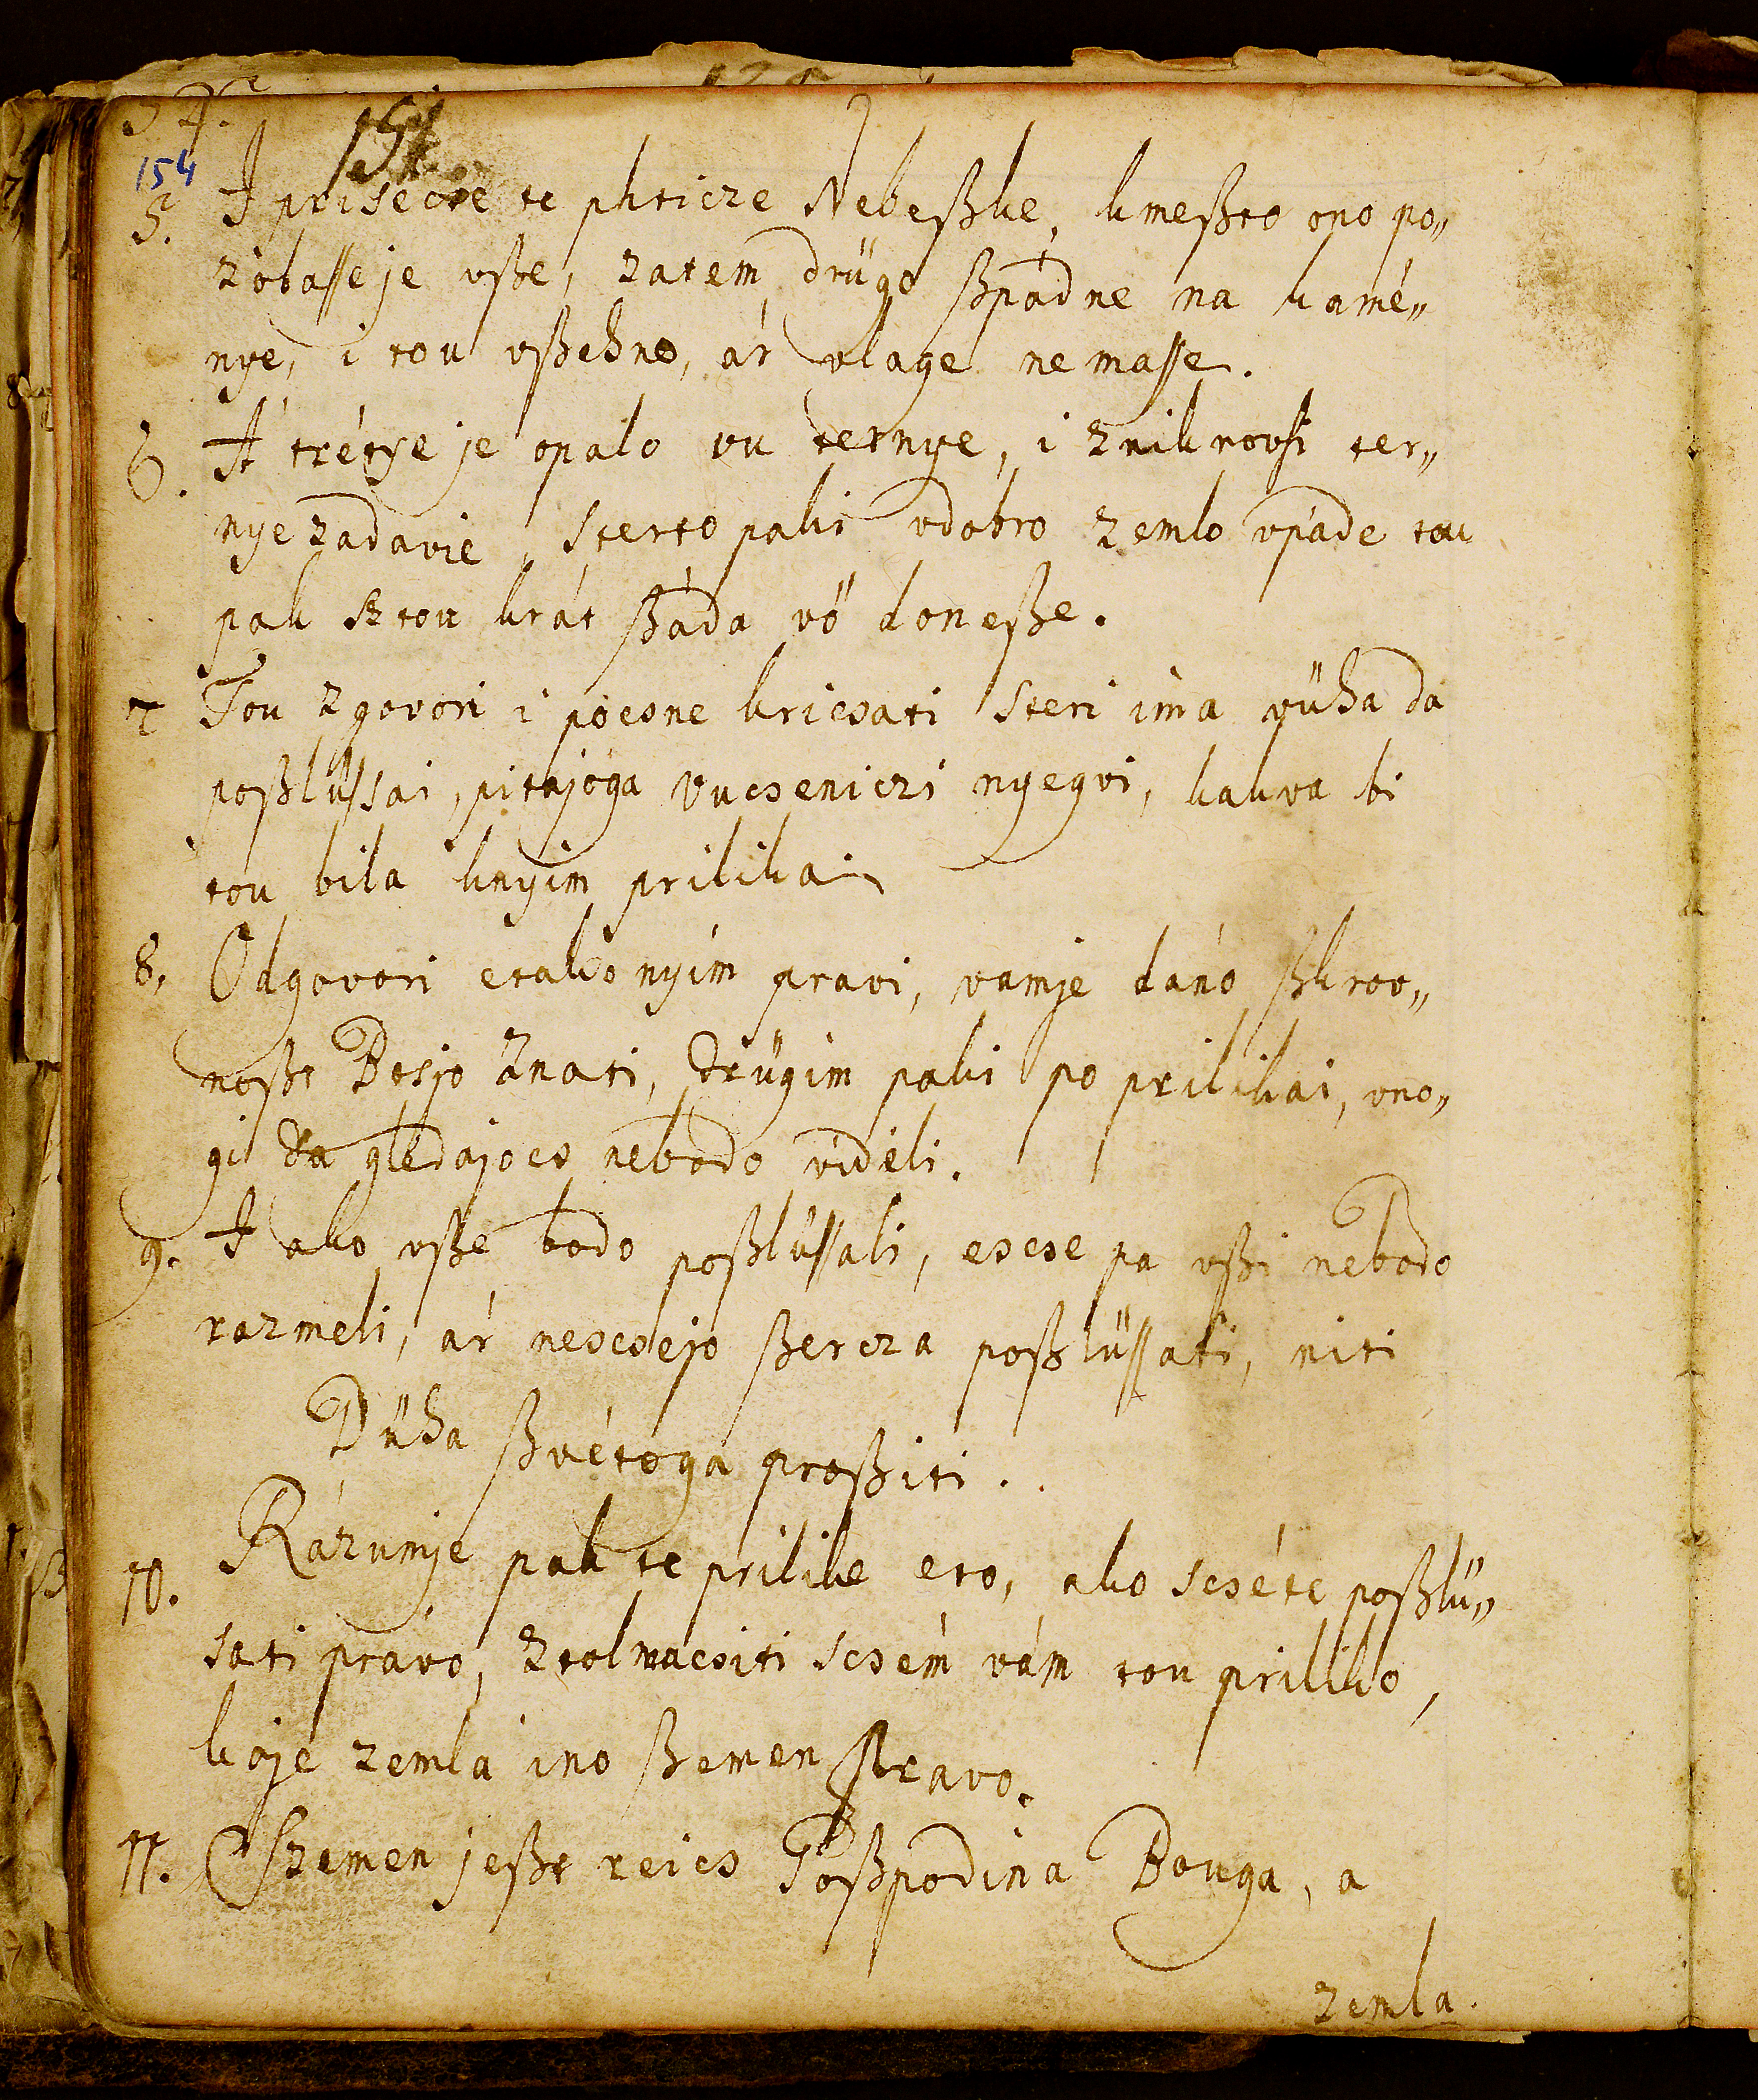 154
154
5. I prisedse te phticze Nebeßke, kmeßto ono po„
zobasse je vße, zatem drügo ßpádne na kamé„
nye, i tou vßehne, ár vlage nemasse.
6. A trétye je opalo vu ternye, i zniknovsi ter„
nye zadavie, sterto paki vdobro zemlo vpáde tou
pak sztou krát ßáda vö doneße.
7 Tou zgovori i pocsne kricsati steri ima vüha da
poßlüssai, pitajóga vucseniczi nyegvi, kakva bi
tou bila knyim prilika.
8. Odgovori etako nyim pravi, vamje dánó ßkrov„
noßt Bosjo znati, drügim paki po prilikai, vno„
gi da gledajocs nebodo vidéli.
9. I ako vße bodo poßlüssali, escse pa vßi nebodo
razmeli, ár nescsejo ßercza poßlüssati, niti
Düha ßvétoga proßiti.
10. Rázumje pak te prilike eto, ako scséte poßlü„
sati právo, ztolmacsiti scsém vám tou priliko,
kaje zemla ino ßemen pravo.
11. Szemen jeßt reics Goßpodina Bouga, a
zemla.